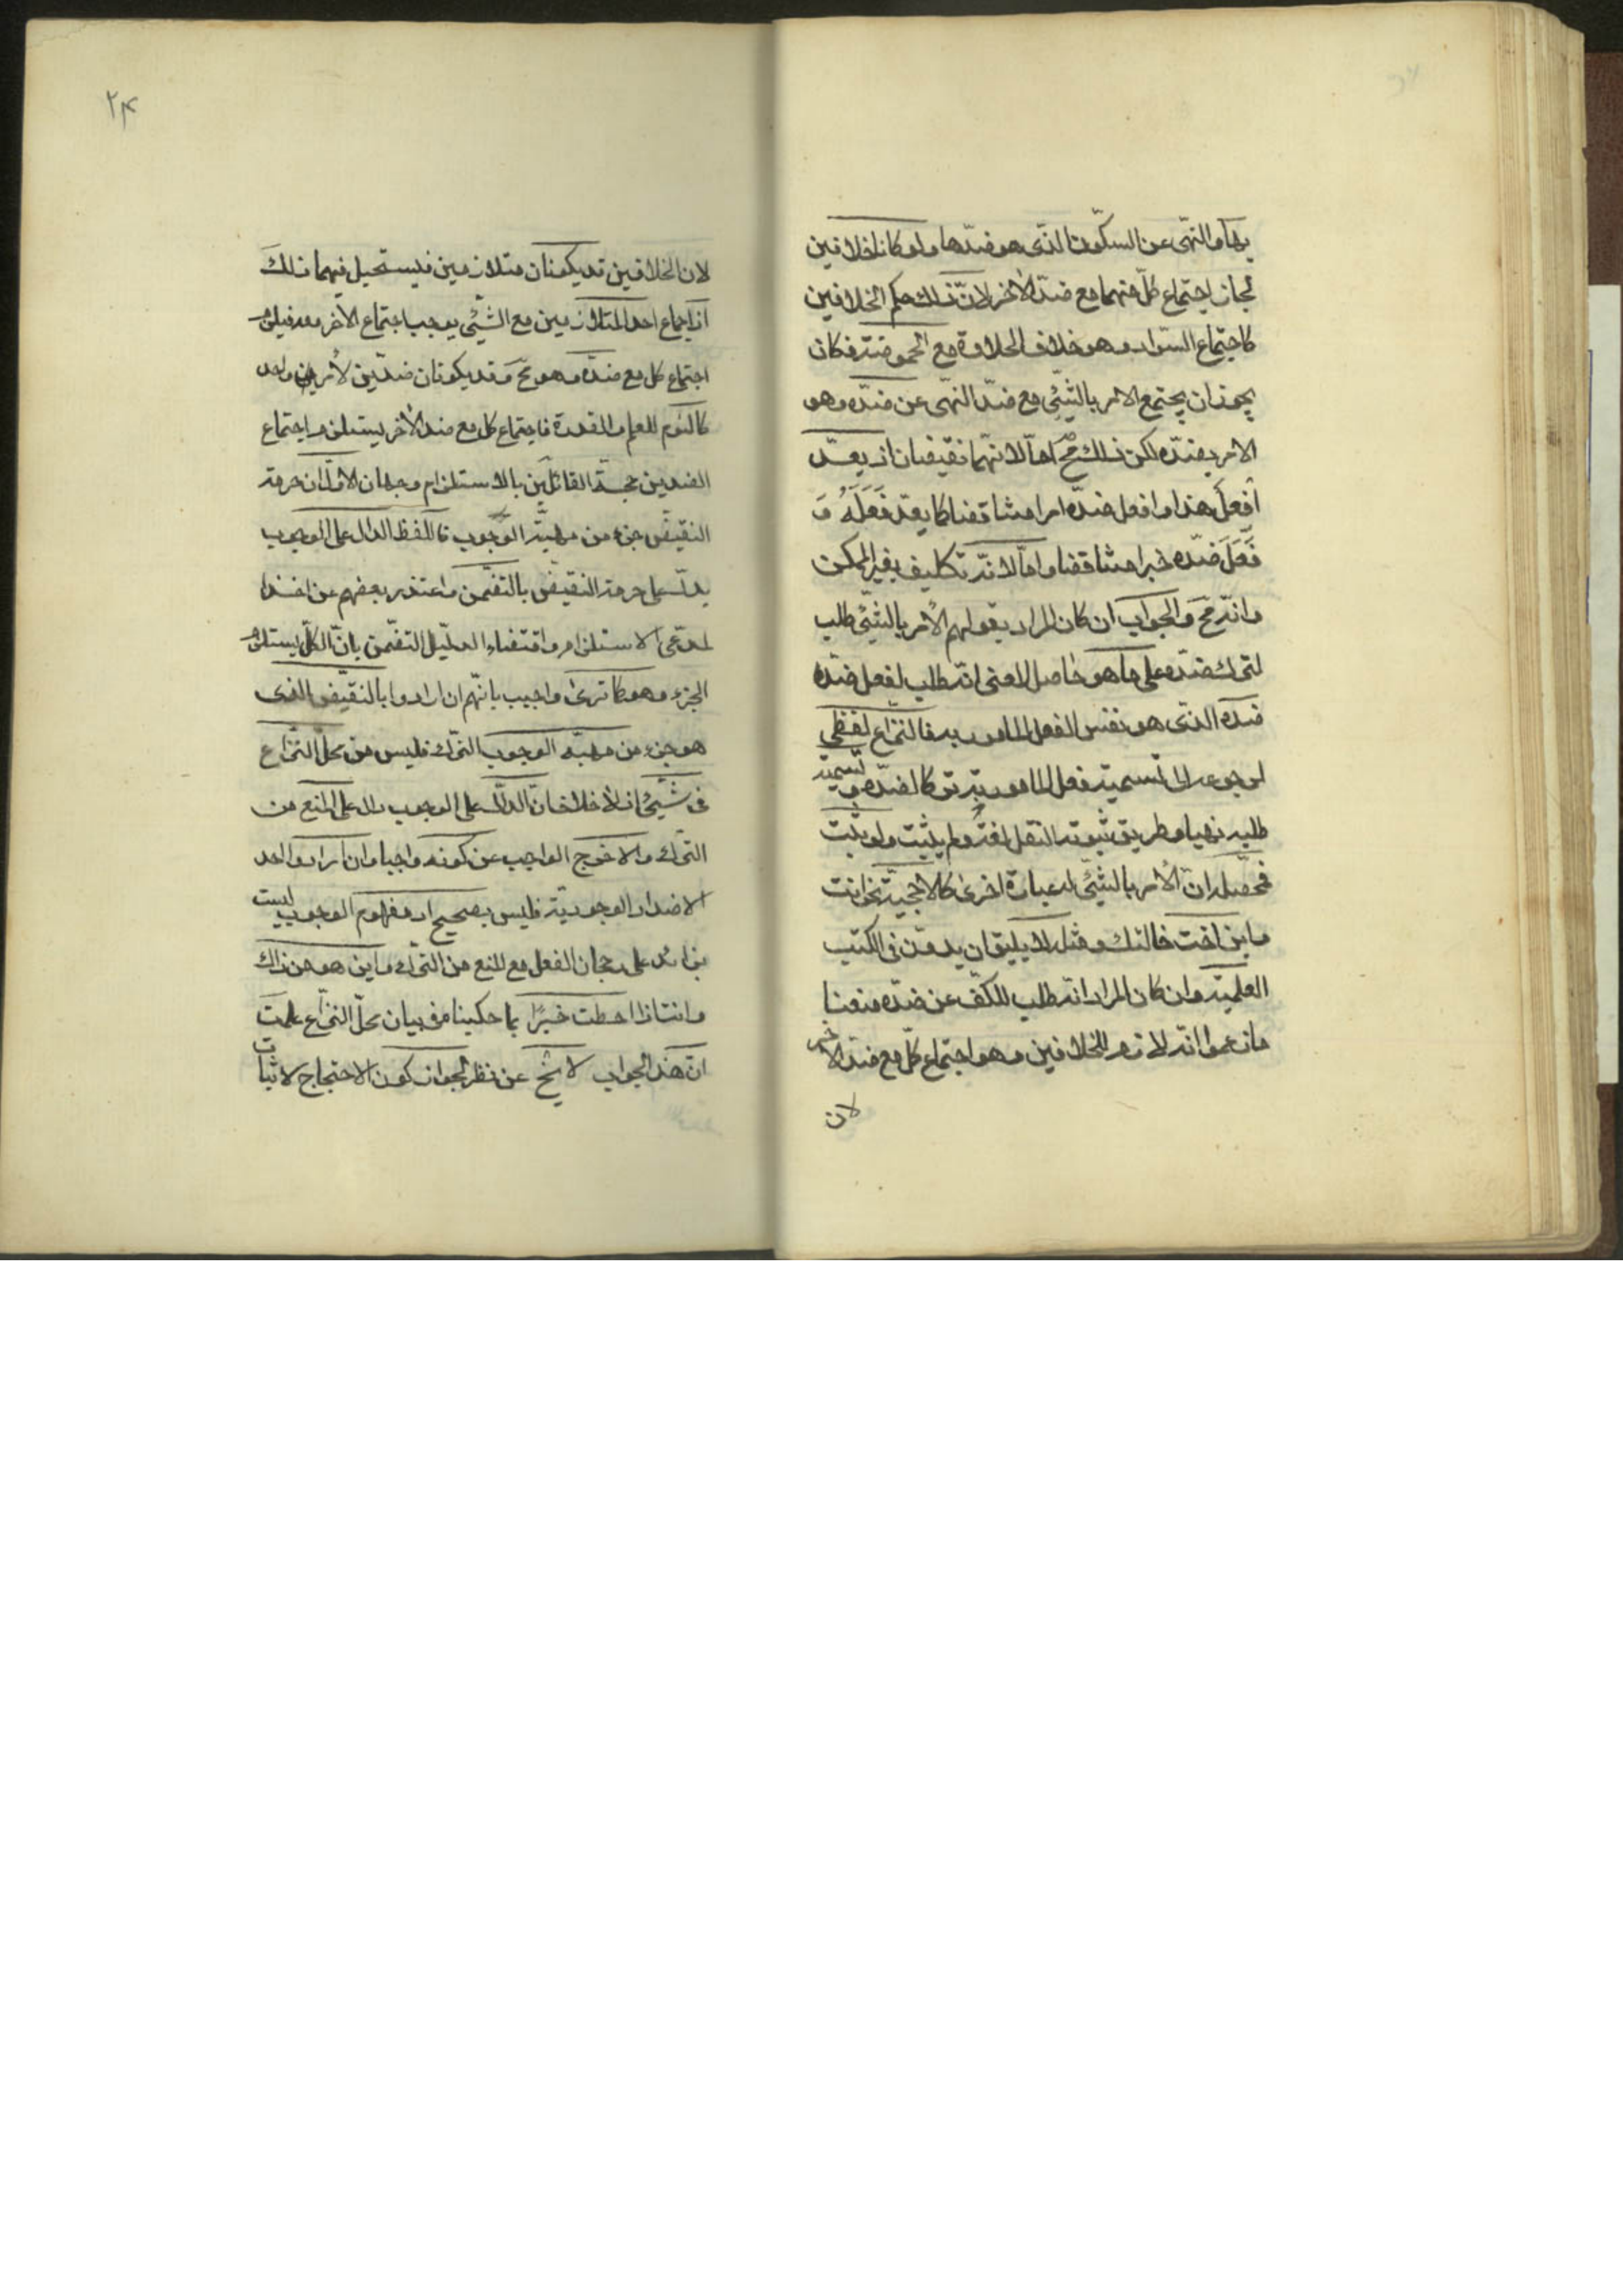 بها والنهى عن السكون الذى هو ضدها ولو كانا خلافين
لجاز اجتماع كل منهما مع ضد الاخر لان ذلك حكم الخلافين
كاجتماع السواد وهو خلاف الحلاوة مع الحموضة فكان
يجوز ان يجتمع الامر بالشئ مع ضد النهى عن ضده وهو
الامر بضده لكن ذلك مح اما لانهما نقيضان اذ يعد
افعل هذا وافعل ضده امرا متناقضا كما يعد فَعَلَهُ وَ
فَعَلَ ضده خبرا متناقضا واما لانه تكليف بغير الممكن
وانه مح والجواب ان كان المراد بقولهم الامر بالشئ طلب
لترك ضده على ما هو حاصل المعنى انه طلب لفعل ضده
ضده الذى هو نفس الفعل المامور به فالنزاع لفظى
لرجوعه الى تسمية فعل المامور به تركا لضده وتسمية
طلبه نهيا وطريق ثبوته النقل لغة ولم يثبت ولو ثبت
فمحصله ان الامر بالشئ له عبارة اخرى كالاحجية نحو انت
وابن اخت خالتك ومثله لا يليق ان يدون فى الكتب
العلمية وان كان المراد انه طلب للكف عن ضده منعنا
ما زعموا انه لازم للخلافين وهو اجتماع كل مع ضد الاخر
لان
٢٤
لان الخلافين قد يكونان متلازمين فيستحيل فيهما ذلك
اذ اجماع احد المتلازمين مع الشئ يوجب اجتماع الاخر معه فيلزم
اجتماع كل مع ضده وهو مح وقد يكونان ضدين لامر واحد
كالنوم للعلم والقدرة فاجتماع كل مع ضد الاخر يستلزم اجتماع
الضدين حجة القائلين بالاستلزام وجهان الاول ان حرمة
النقيض جزء من مهية الوجوب فاللفظ الدال على الوجوب
يدل على حرمة النقيض بالتضمن واعتذر بعضهم عن اخذ
المدعى الاستلزام واقتضاء الدليل التضمن بان الكل يستلزم
الجزء وهو كما ترى واجيب بانهم ان ارادوا بالنقيض الذى
هو جزء من مهية الوجوب الترك فليس من محل النزاع
فى شئ اذ لا خلاف فان الدال على الوجوب دال على المنع من
الترك والا خرج الواجب عن كونه واجبا وان اراد واحد
الاضداد الوجودية فليس بصحيح اذ مفهوم الوجوب ليست
بزائد على رجحان الفعل مع المنع من الترك واين هو من ذاك
وانت اذا احطت خبرًا بما حكيناه فى بيان محل النزاع علمت
ان هذا الجواب لا يخ عن نظر لجواز كون الاحتجاج لاثبات